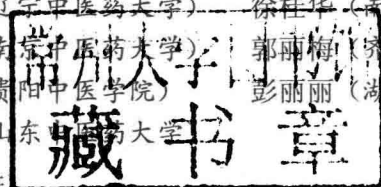 辽宁中医药大学） 徐桂华（南
南京中医药大学） 郭丽梅（齐
贵阳中医学院） 彭丽丽（湖
山东中医药大学
常州大学
藏书章